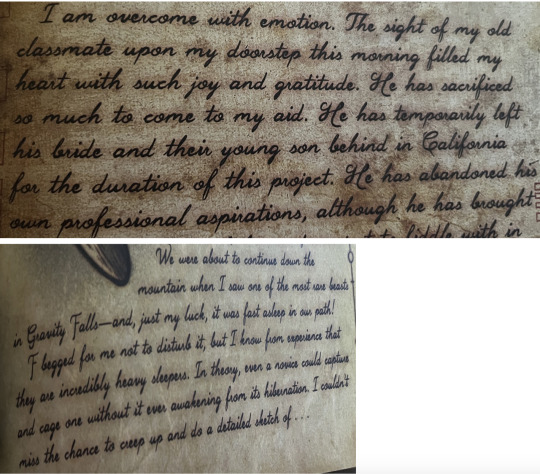 I am overcome with emotion. The sight of my old
classmate upon my doorstep this morning filled my
heart with such joy and gratitude. He has sacrificed
so much to come to my aid. He has temporarily left
his bride and their young son behind in California
for the duration of this project. He has abandoned his
own professional aspirations, although he has brought
to fiddle with in
We were about to continue down the
mountain when I saw one of the most rare beasts
in Gravity Falls—and, just my luck, it was fast asleep in our path!
F begged for me not to disturb it, but I know from experience that
they are incredibly heavy sleepers. In theory, even a novice could capture
and cage one without it ever awakening from its hibernation. I couldn't
miss the chance to creep up and do a detailed sketch of . . .